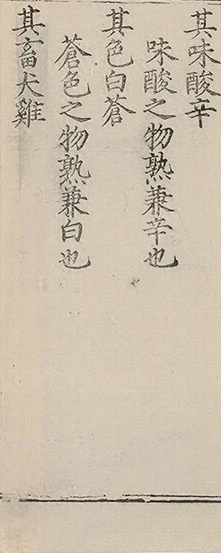 其味酸辛
味酸之物熟兼辛也
其色白蒼
蒼色之物熟兼白也
其畜犬雞